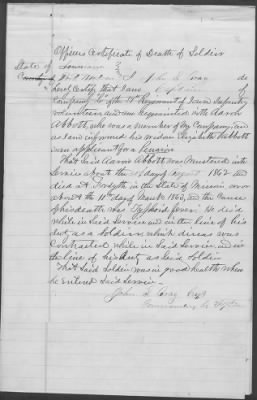 Officers Certificate of Death of Soldier
State of
I John S. Gray do
hereby Certify that I am Captain of
Company "H" of the 19th Regiment of Iowa Infantry
Volunteers and was acquainted with Aaron
Abbott, who was a member of my Company, and
as I am informed his widow Elizabeth Abbott
is an applicant for a Pension
That Said Aaron Abbott was Mustered into
Service about the day of August 1862 and
died at Forsyth in the State of Missouri on or
about the 10th day of March 1863, and the Cause
of his death was "Typhoid fever". he died
while in Said Service and in the line of his
duty as a Soldier, which disease was
Contracted while in Said Service and in
the line of his duty as Said Soldier
That Said Soldier was in good health when
he entered Said Service.
John S. Gray Capt
Commanding Co